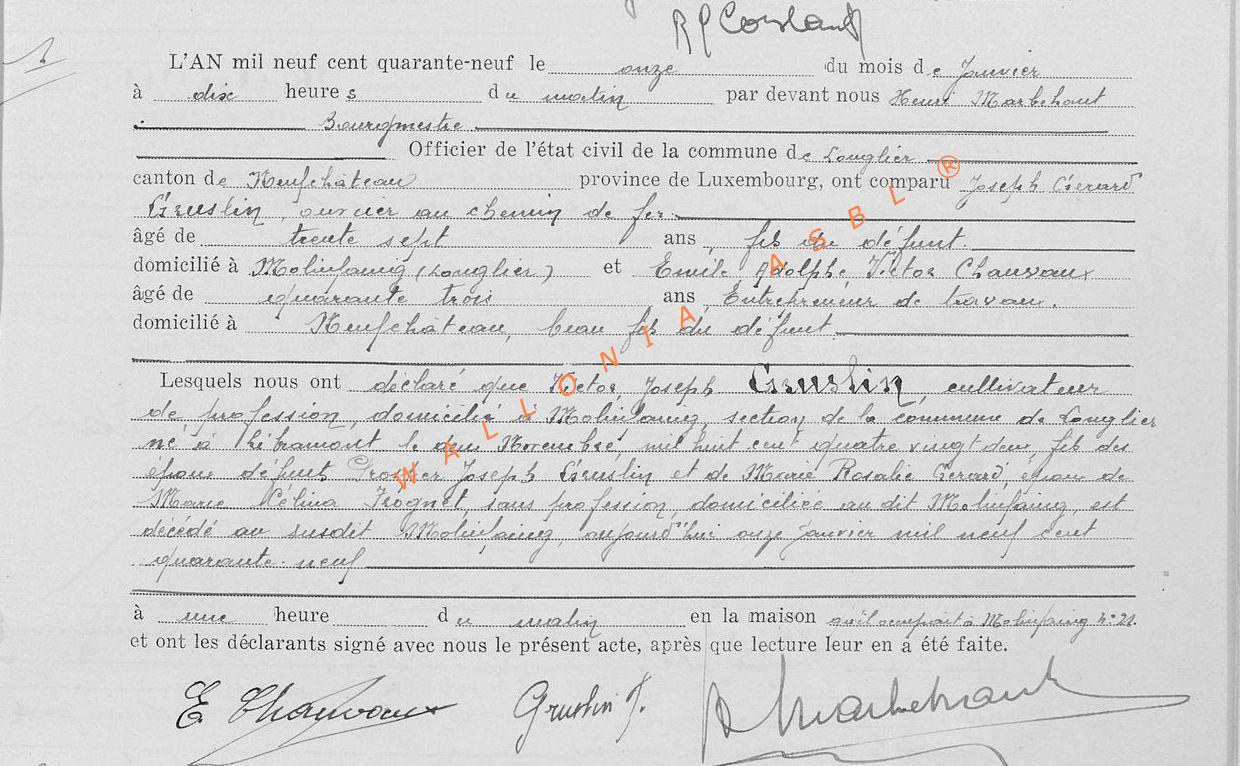 L'AN mil neuf cent quarante-neuf le onze du mois de Janvier
à dix heures du matin par devant nous Henri Marbehant
Bourgmestre
Officier de l'état civil de la commune de Longlier
canton de Neufchâteau province de Luxembourg, ont comparu Joseph Gerard
Gruslin, ouvrier au chemin de fer
âgé de trente sept ans, fils du défunt.
domicilié à Molinfaing (Longlier) et Emile Adolphe Victor Chauvaux
âgé de quarante trois ans, Entrepreneur de travaux.
domicilié à Neufchâteau, beau fils du défunt
Lesquels nous ont déclaré que Victor, Joseph Gruslin, cultivateur
de profession, domicilié à Molinfaing, section de la commune de Longlier
né à Libramont le deux Novembre, mil huit cent quatre vingt deux, fils des
époux défunts Joseph Gruslin et de Marie Rosalie Gerard, époux de
Marie Célina Trognet, sans profession, domiciliée au dit Molinfaing, est
décédé au susdit Molinfaing, aujourd'hui onze janvier mil neuf cent
quarante-neuf
à une heure du matin en la maison qu'il occupait à Molinfaing n° 21.
et ont les déclarants signé avec nous le présent acte, après que lecture leur en a été faite.
E Chauvaux Gruslin J. H Marbehant
WALLONIA ASBL ®